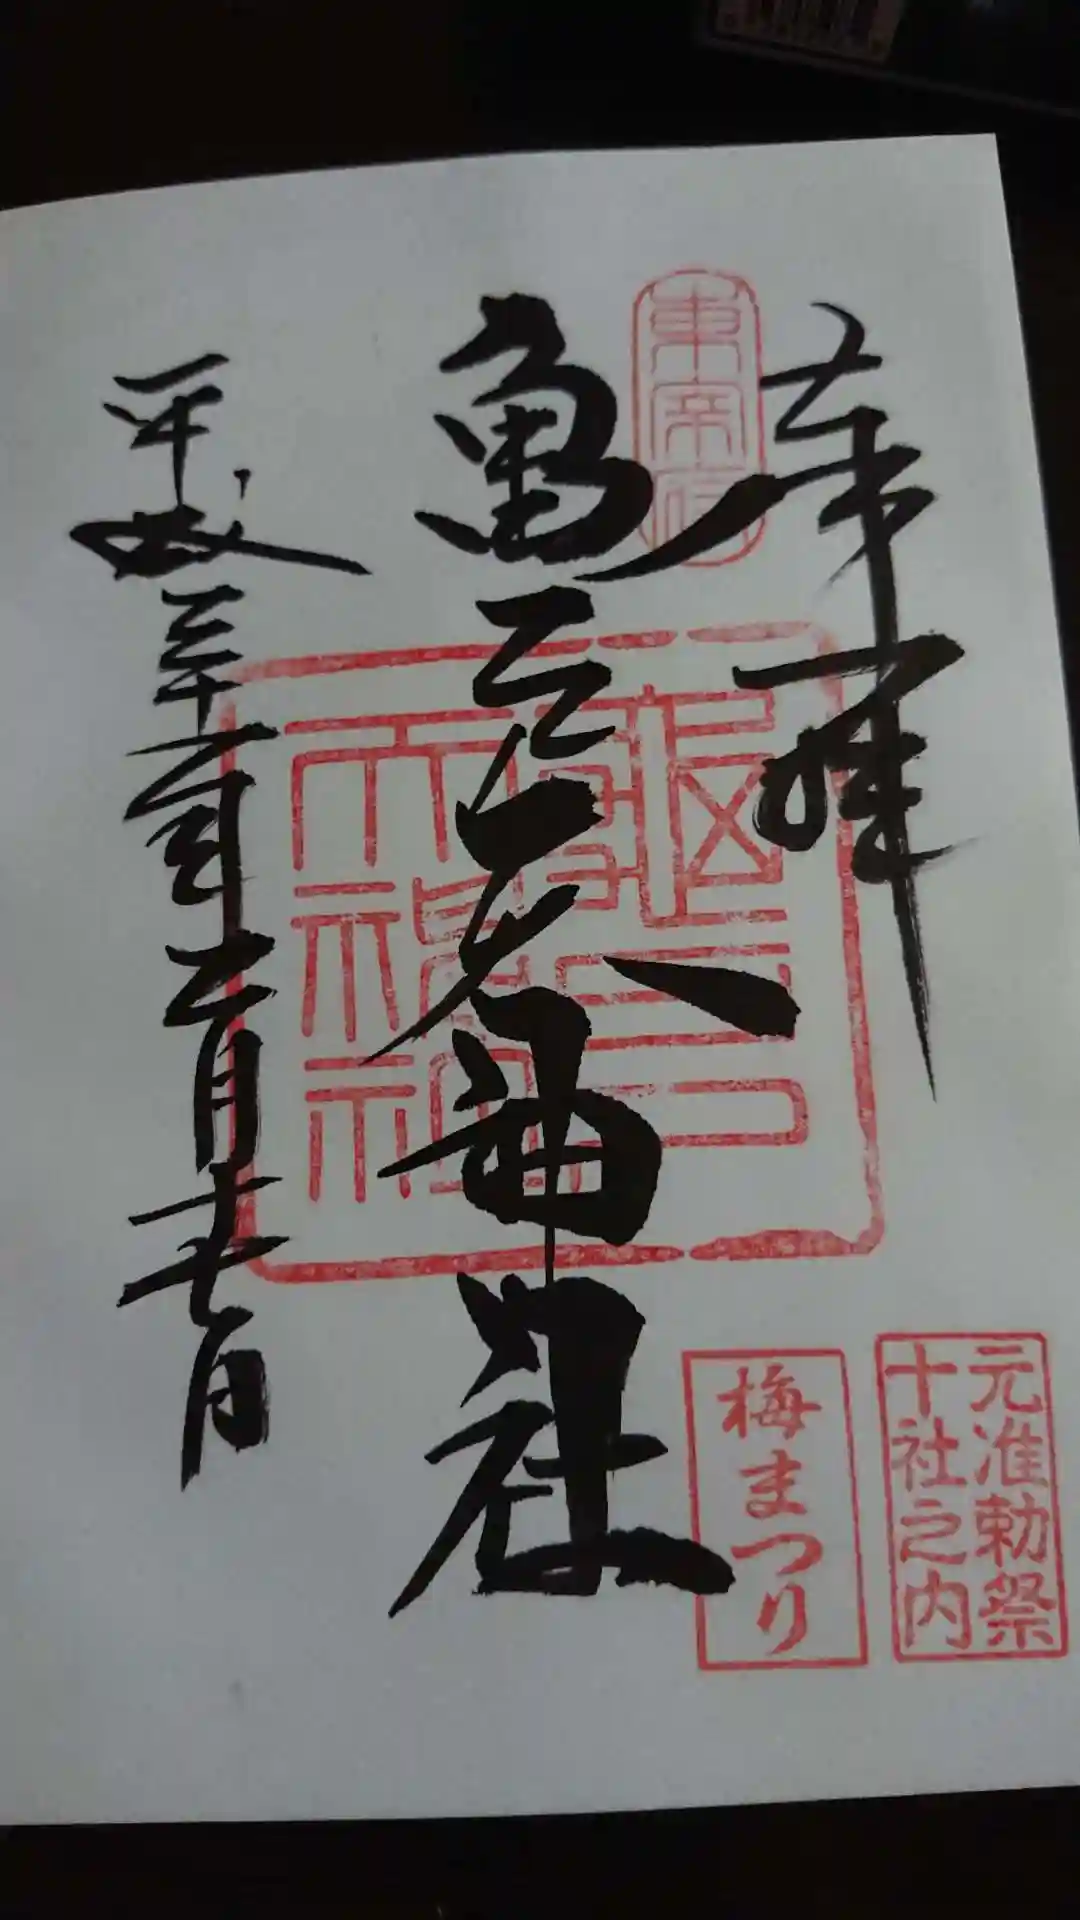 奉拝
東帝府
亀戸天神社
亀戸天神社
平成三十一年二月十七日
元准勅祭
十社之内
梅まつり